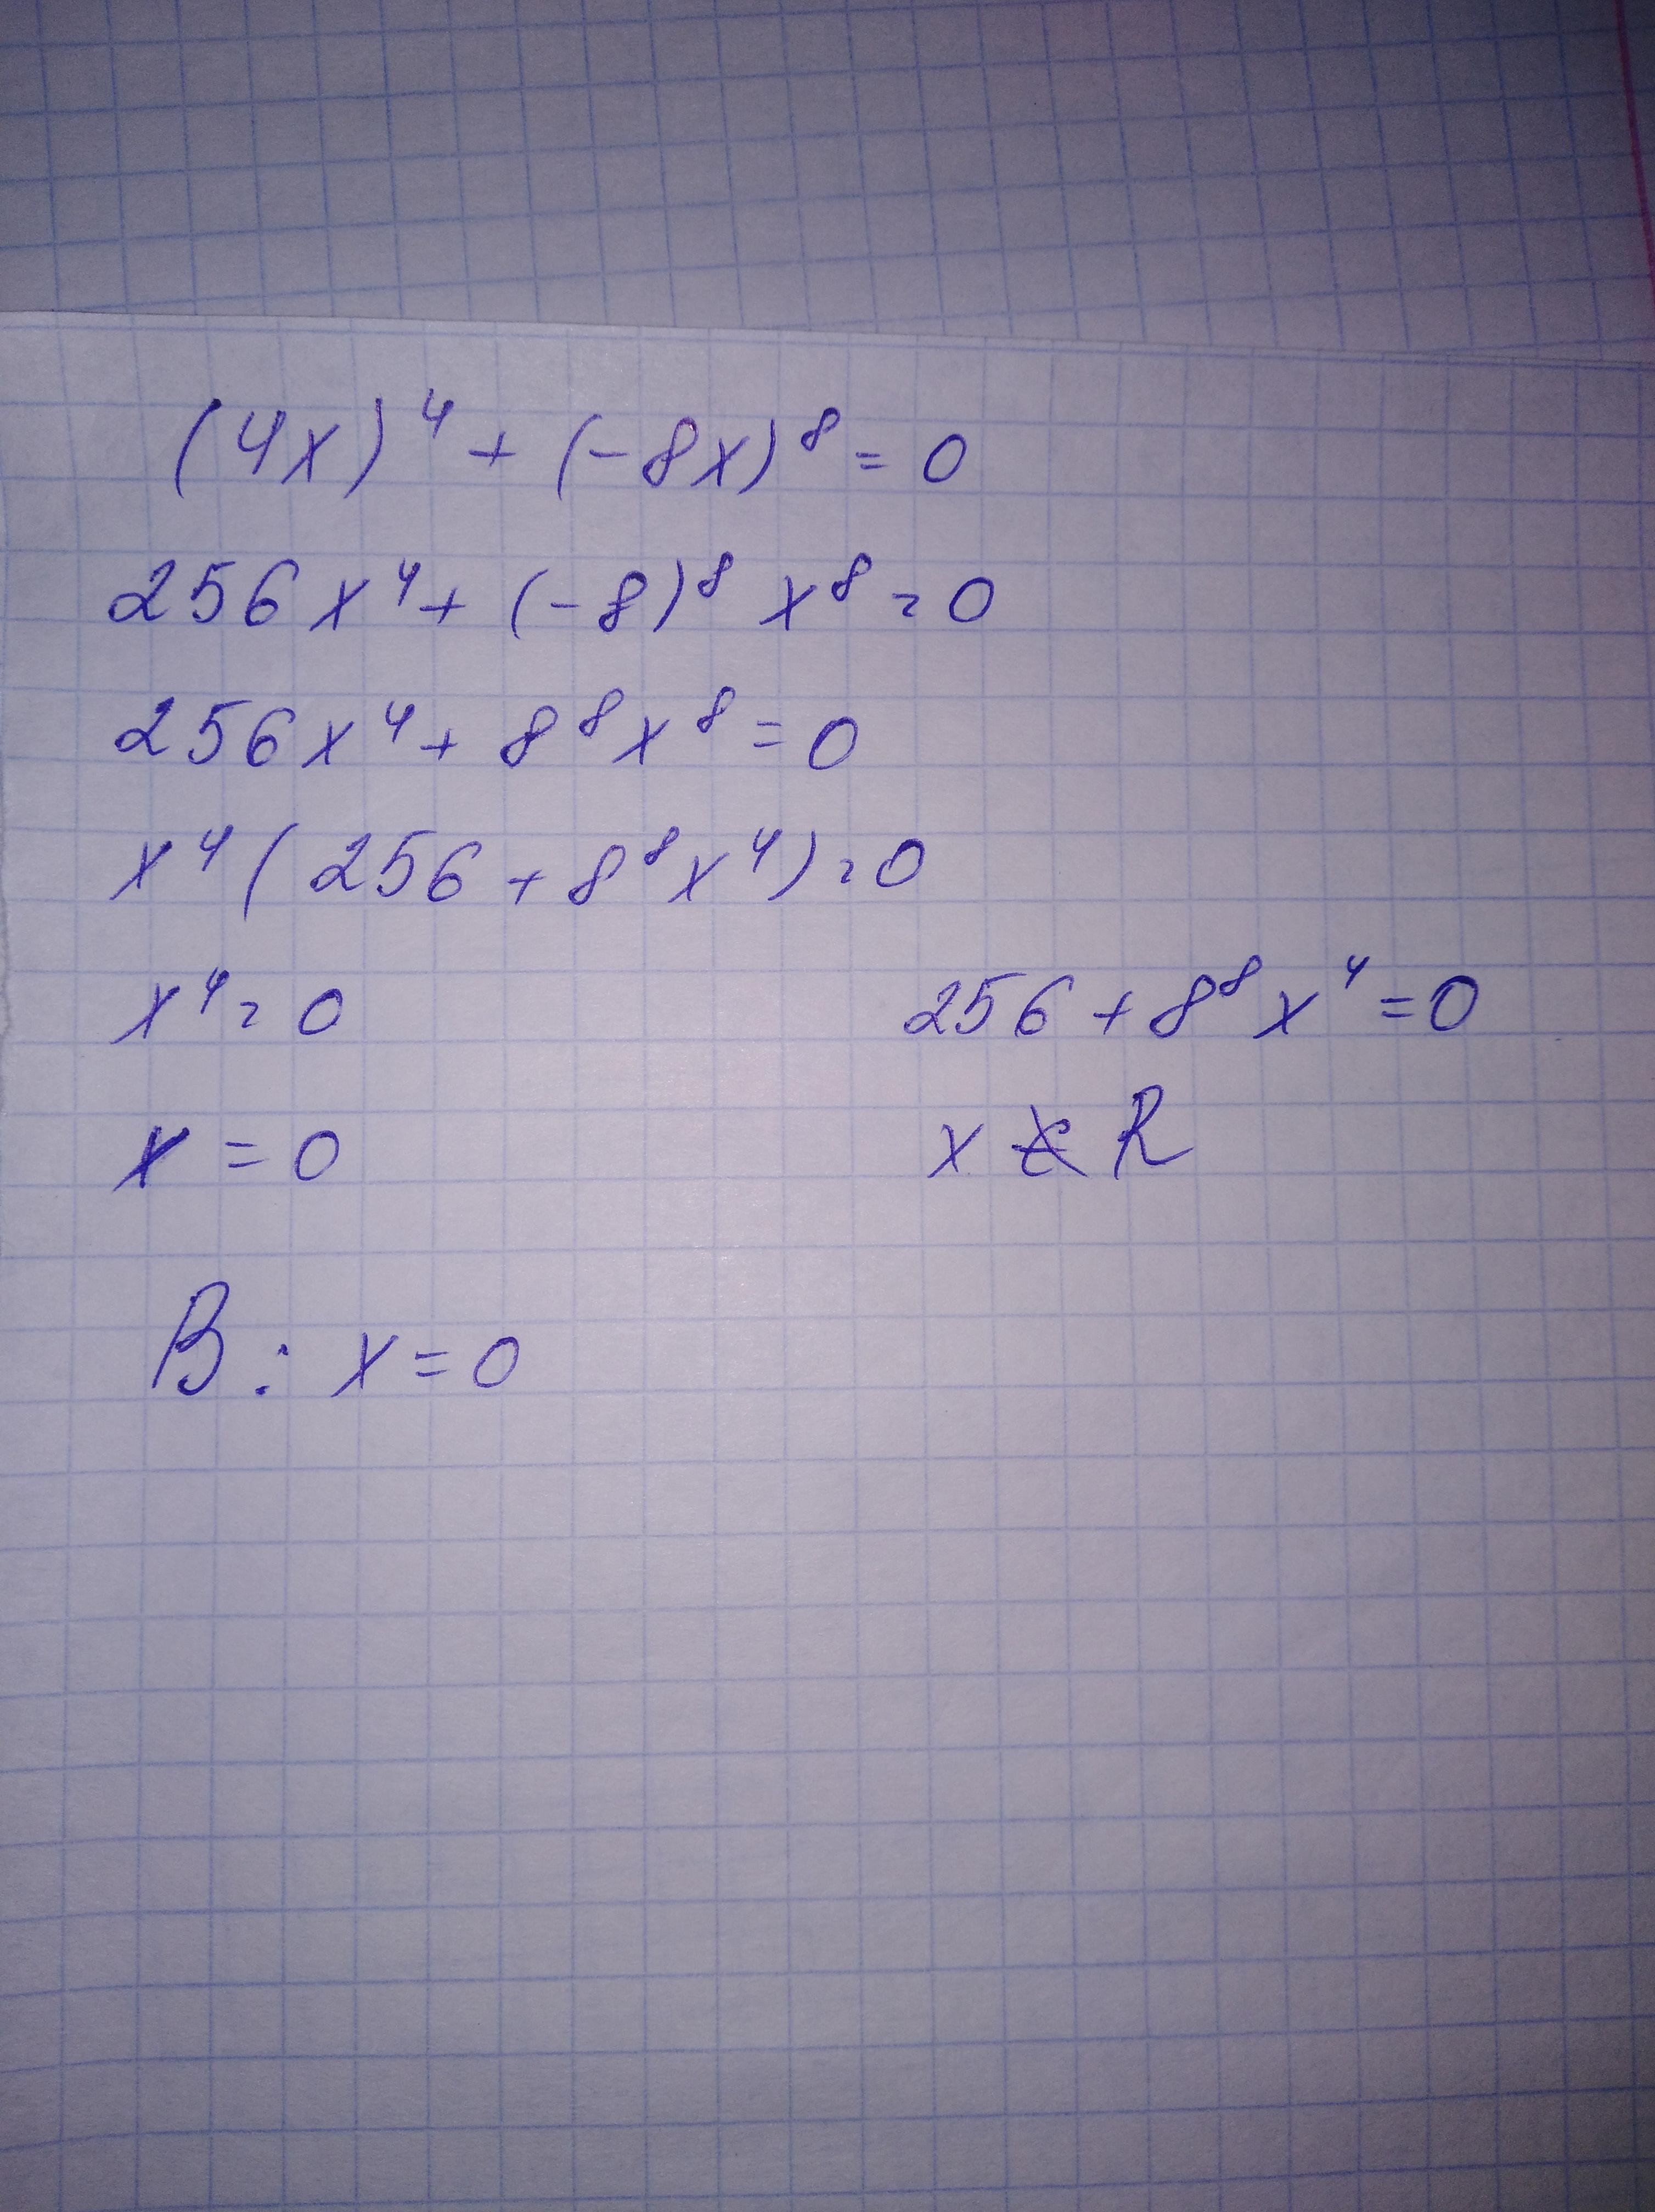 (4x)⁴ + (-8x)⁸ = 0
256x⁴ + (-8)⁸ x⁸ = 0
256x⁴ + 8⁸x⁸ = 0
x⁴(256 + 8⁸x⁴) = 0
x⁴ = 0 256 + 8⁸x⁴ = 0
x = 0 x ∉ R
В: x = 0